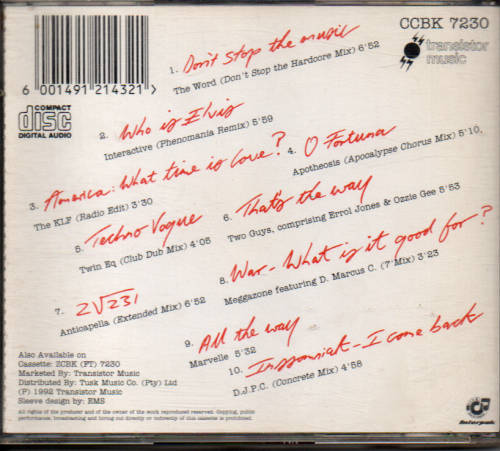 CCBK 7230
transistor
music
6 001491 214321 >
COMPACT
disc
DIGITAL AUDIO
1. Don't stop the music
The Word (Don't Stop the Hardcore Mix) 6'52
2. Who is Elvis
Interactive (Phenomania Remix) 5'59
3. America: What time is love?
The KLF (Radio Edit) 3'30
4. O Fortuna
Apotheosis (Apocalypse Chorus Mix) 5'10,
5. Techno Vogue
Twin Eq (Club Dub Mix) 4'05
6. That's the way
Two Guys, comprising Errol Jones & Ozzie Gee 5'53
7. 2√231
Anticapella (Extended Mix) 6'52
8. War - What is it good for?
Meggazone featuring D. Marcus C. (7"Mix) 3'23
9. All the way
Marvelle 5'32
10. Inssomniak - I come back
D.J.P.C. (Concrete Mix) 4'58
Also Available on
Cassette: ZCBK (FT) 7230
Marketed By: Transistor Music
Distributed By: Tusk Music Co. (Pty) Ltd
(P) 1992 Transistor Music
Sleeve design by: EMS
All rights of the producer and of the owner of the work reproduced reserved. Copying, public
performance, broadcasting and hiring out directly or indirectly of this cassette is prohibited.
Interpak